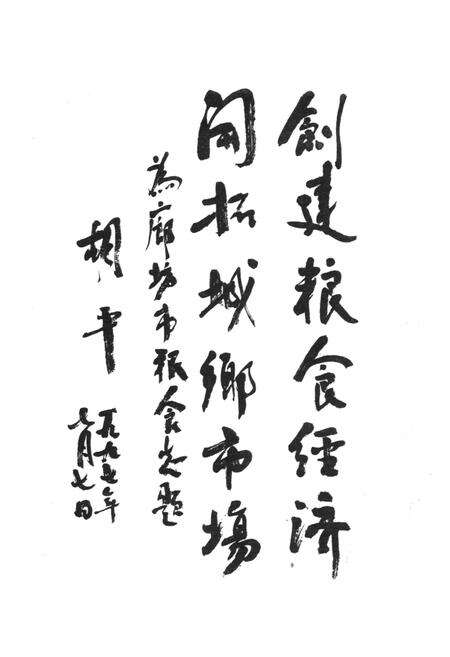 創建粮食经济
開拓城鄉市場
為廊坊市粮食志题
胡平
一九九七年
七月七日